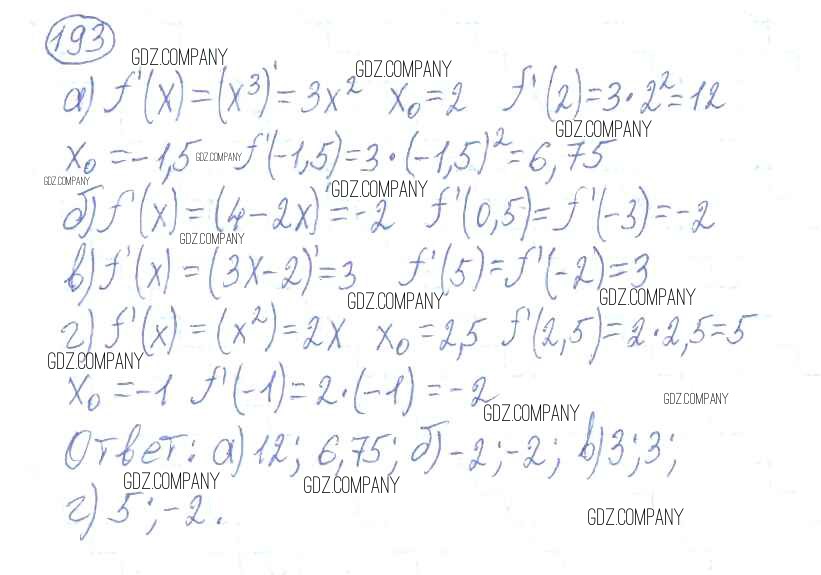 193
GDZ.COMPANY
GDZ.COMPANY
а) f'(x) = (x³)' = 3x² x₀ = 2 f'(2) = 3·2² = 12
GDZ.COMPANY
x₀ = -1,5 GDZ.COMPANY f'(-1,5) = 3·(-1,5)² = 6,75
GDZ.COMPANY GDZ.COMPANY
б) f'(x) = (4-2x)' = -2 f'(0,5) = f'(-3) = -2
GDZ.COMPANY
в) f'(x) = (3x-2)' = 3 f'(5) = f'(-2) = 3
GDZ.COMPANY GDZ.COMPANY
г) f'(x) = (x²) = 2x x₀ = 2,5 f'(2,5) = 2·2,5 = 5
GDZ.COMPANY
x₀ = -1 f'(-1) = 2·(-1) = -2
GDZ.COMPANY GDZ.COMPANY
Ответ: а) 12; 6,75; б) -2; -2; в) 3; 3;
GDZ.COMPANY GDZ.COMPANY
г) 5; -2.
GDZ.COMPANY